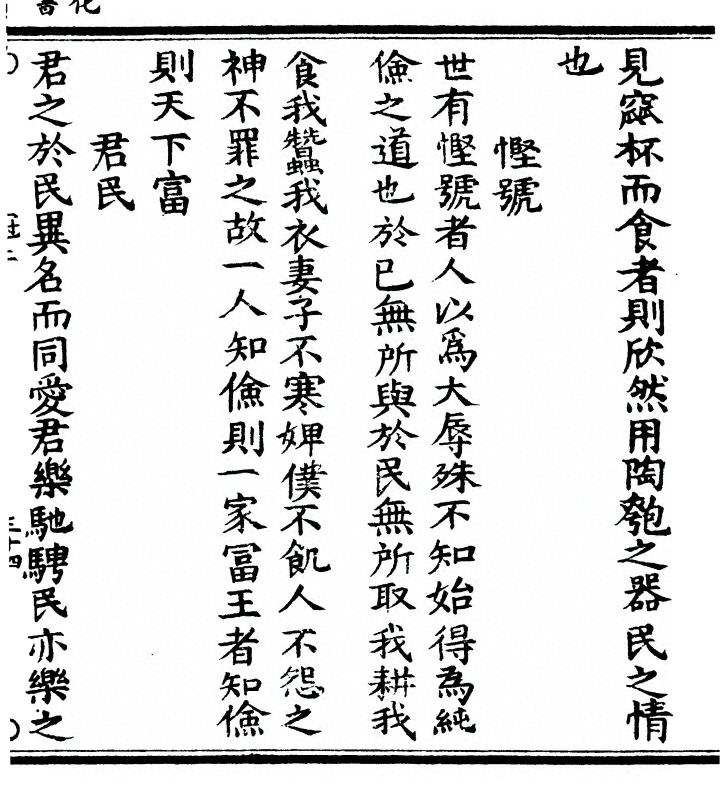 見窳杯而食者則欣然用陶匏之器民之情
也
慳號
世有慳號者人以爲大辱殊不知始得為純
儉之道也於已無所與於民無所取我耕我
食我蠶我衣妻子不寒婢僕不飢人不怨之
神不罪之故一人知儉則一家冨王者知儉
則天下富
君民
君之於民異名而同愛君樂馳騁民亦樂之
三十四